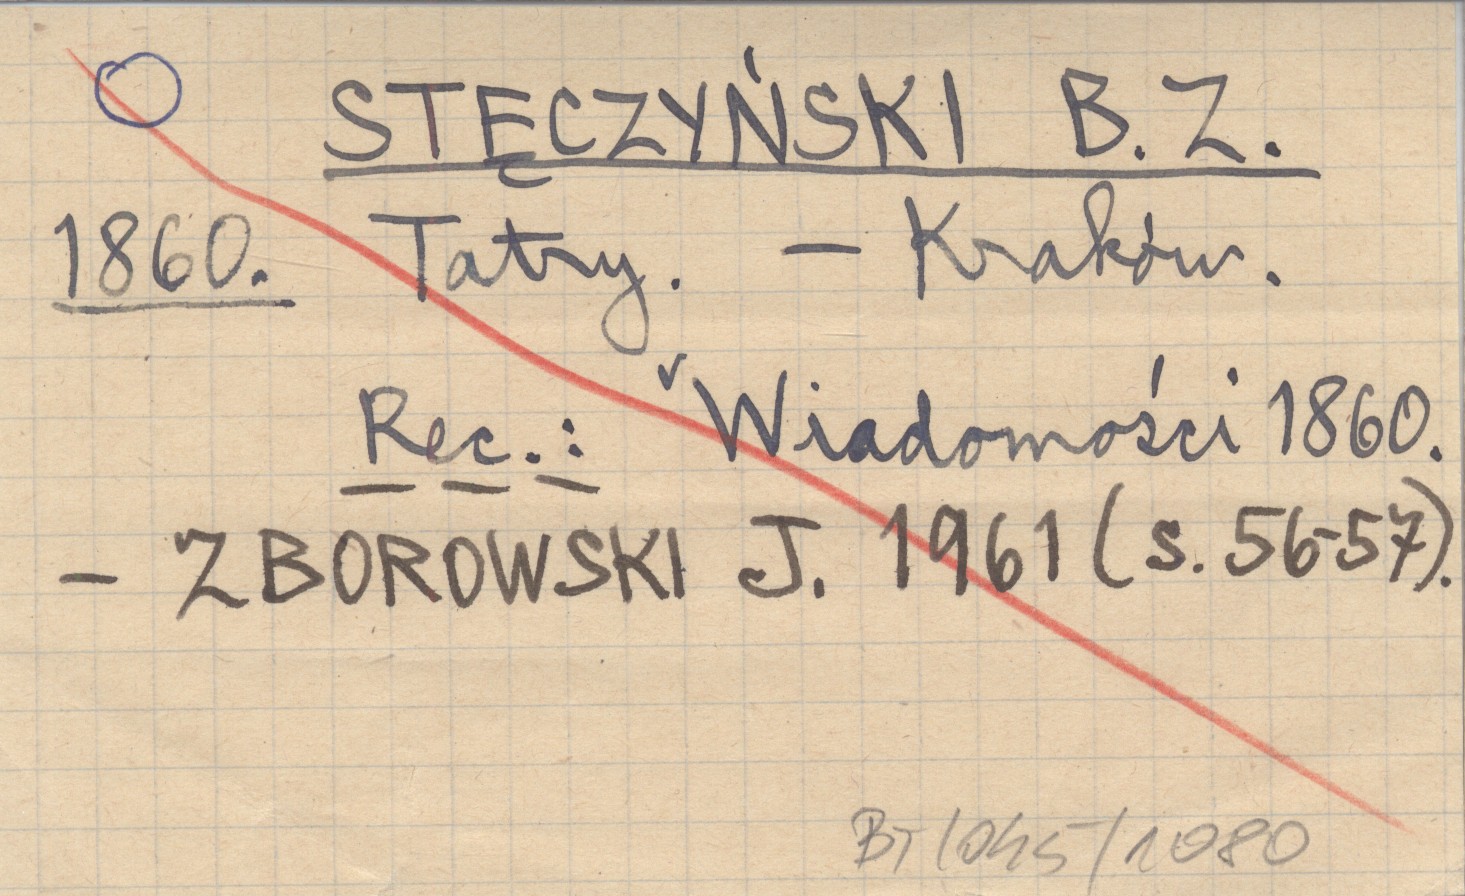 STĘCZYŃSKI B. Z.
1860. Tatry. – Kraków.
Rec.: Wiadomości 1860.
– ZBOROWSKI J. 1961 (s. 56-57).
BT/045/1080